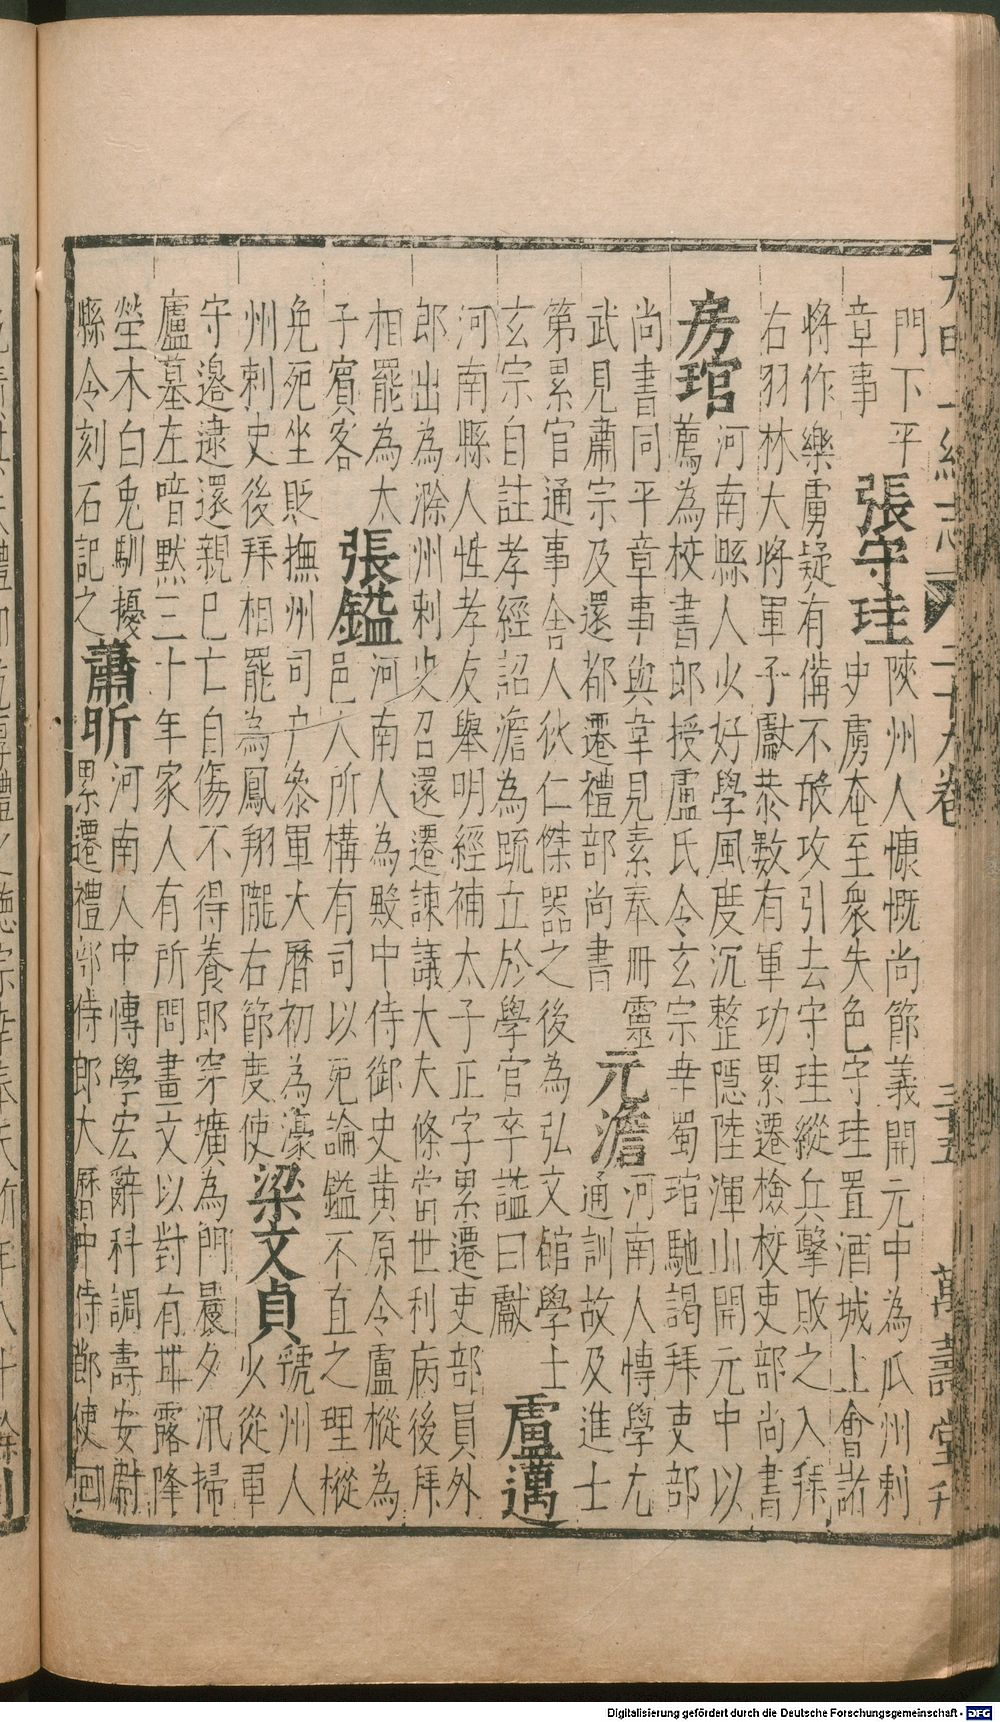 大明一統志
二十九卷
三十五
萬壽堂刊
門下平
章事
張守珪
陝州人慷慨尚節義開元中為瓜州刺
史虜奄至衆失色守珪置酒城上會諸
將作樂虜疑有備不敢攻引去守珪縱兵擊敗之入拜
右羽林大將軍子獻恭數有軍功累遷檢校吏部尚書
房琯
河南縣人少好學風度沉整隱陸渾山開元中以
薦為校書郎授盧氏令玄宗幸蜀琯馳謁拜吏部
尚書同平章事與韋見素奉冊靈
武見肅宗及還都遷禮部尚書
元澹
河南人博學尢
通訓故及進士
第累官通事舍人狄仁傑器之後為弘文館學士
玄宗自註孝經詔澹為疏立於學官卒謚曰獻
盧邁
河南縣人性孝友舉明經補太子正字累遷吏部員外
郎出為滁州刺史召還遷諫議大夫條當世利病後拜
相罷為太
子賓客
張鎰
河南人為殿中侍御史黃原令盧樅為
邑人所構有司以死論鎰不直之理樅
免死坐貶撫州司户參軍大曆初為濠
州刺史後拜相罷為鳳翔隴右節度使
梁文貞
虢州人
少從軍
守邊逮還親已亡自傷不得養即穿壙為門晨夕汛掃
廬墓左喑默三十年家人有所問畫文以對有甘露降
塋木白兔馴擾
縣令刻石記之
蕭昕
河南人中博學宏辭科調壽安尉
累遷禮部侍郎大曆中侍郎使回
Digitalisierung gefördert durch die Deutsche Forschungsgemeinschaft - DFG